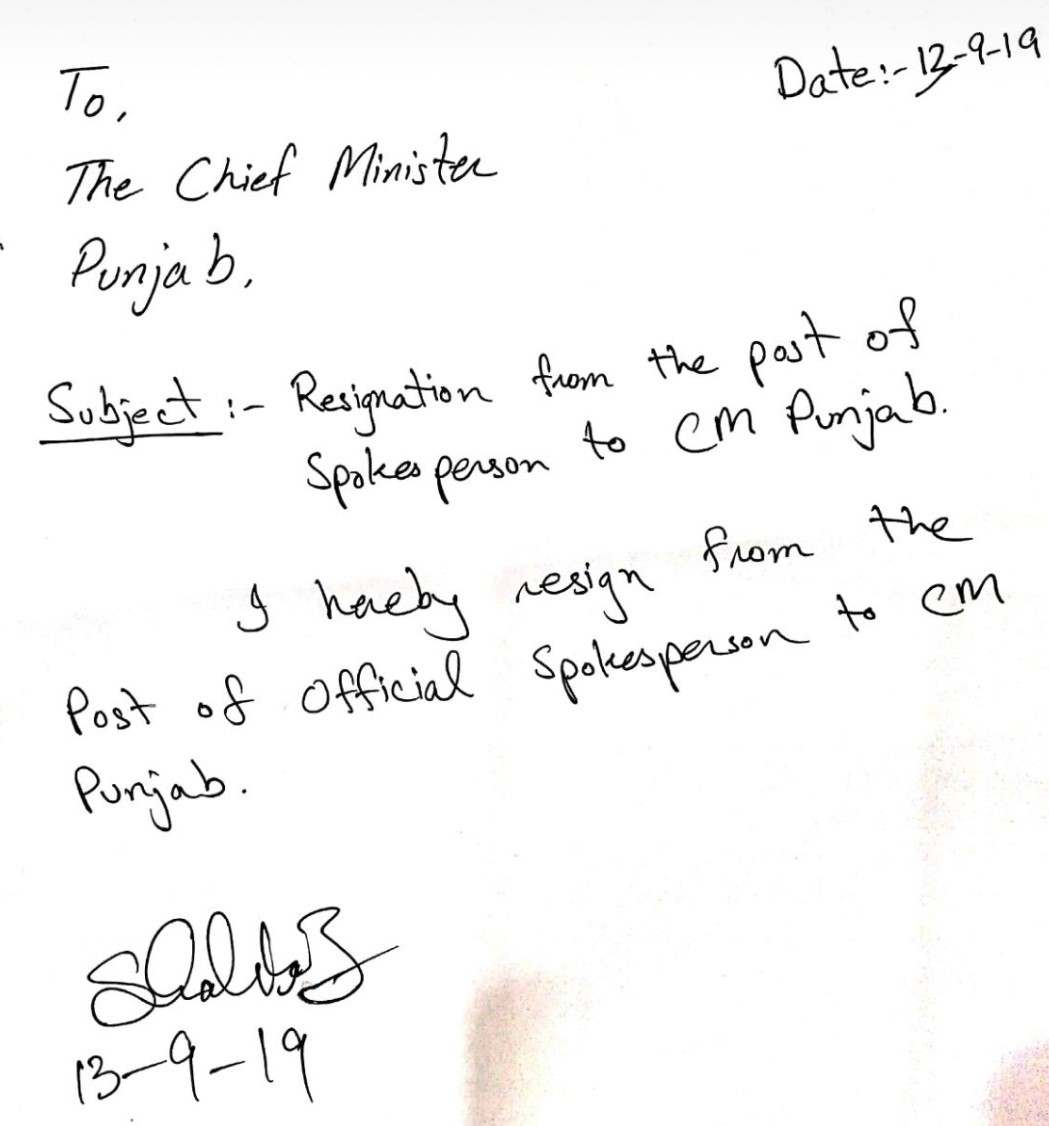 Date:- 13-9-19
To,
The Chief Minister
Punjab,
Subject :- Resignation from the post of
Spokesperson to CM Punjab.
I hereby resign from the
Post of Official Spokesperson to CM
Punjab.
13-9-19